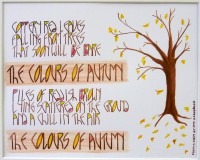 COPPERY RED LEAVES
FALLING FROM TREES
THAT SOON WILL BE BARE
THE COLOURS OF AUTUMN
PILES OF RED &
LYING SCATTERED ON THE GROUND
AND A CHILL IN THE AIR
THE COLOURS OF AUTUMN